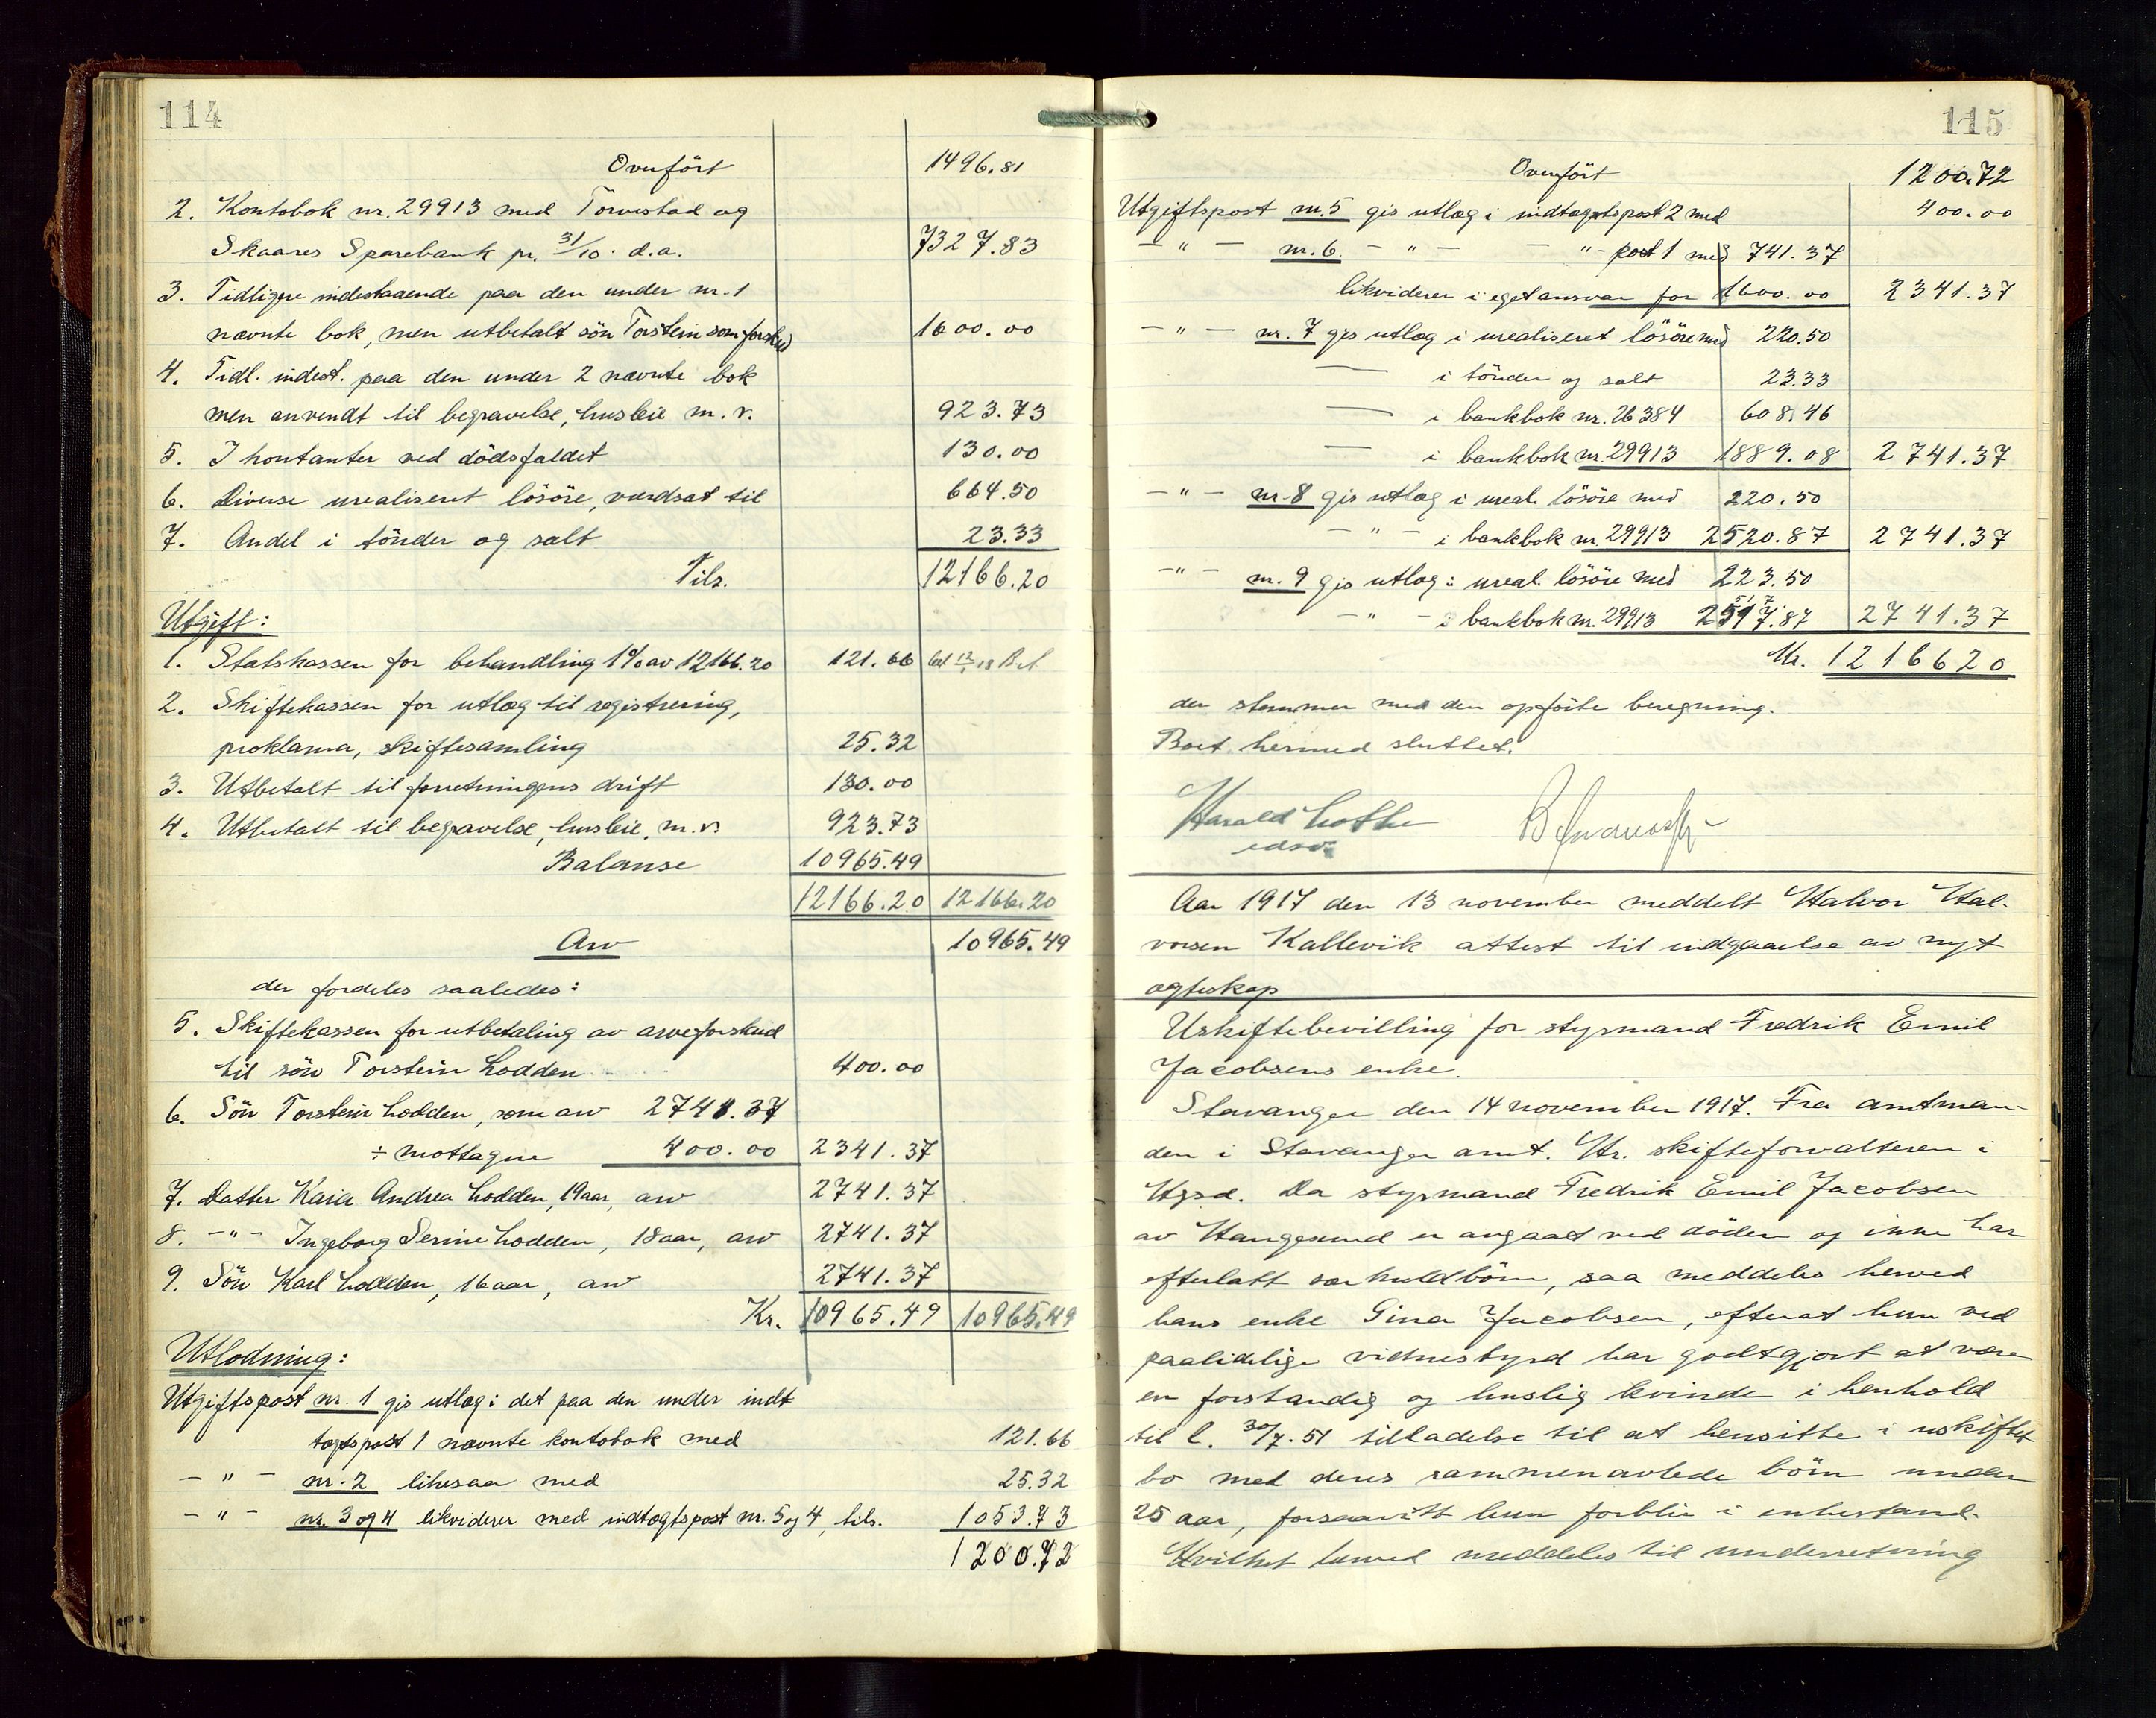 114
Overført 1496.81
2. Kontobok nr. 29913 med Torvestad og
Skaares Sparebank pr. 31/10. d.a. 7327.83
3. Tidligere indestaaende paa den under nr. 1
nævnte bok, men utbetalt sön Torstein som forskud 1600.00
4. Tidl. indest. paa den under 2 nævnte bok
men anvendt til begravelse, husleie m.v. 923.73
5. I kontanter ved dödsfaldet 130.00
6. Diverse urealiseret lösöre, værdsat til 664.50
7. Andel i tönder og salt 23.33
Tils. 12166.20
Utgift:
1. Statskassen for behandling 1% av 12166.20 121.66
2. Skiftekassen for utlæg til registrering,
proklama, skiftesamling 25.32
3. Utbetalt til forretningens drift 130.00
4. Utbetalt til begravelse, husleie, m.v. 923.73
Balanse 10965.49
12166.20 12166.20
Arv 10965.49
der fordeles saaledes:
5. Skiftekassen for utbetaling av arveforskud
til sön Torstein Lodden 400.00
6. Sön Torstein Lodden, som arv 2741.37
÷ mottagne 400.00 2341.37
7. Datter Karia Andrea Lodden, 19 aar, arv 2741.37
8. -"- Ingeborg Serine Lodden, 18 aar, arv 2741.37
9. Sön Karl Lodden, 16 aar, arv 2741.37
Kr. 10965.49 10965.49
Utlodning:
Utgiftspost nr. 1 gis utlæg i det paa den under indt
tægtspost 1 nævnte kontobok med 121.66
-"- nr. 2 likesaa med 25.32
-"- nr. 3 og 4 likviderer med indtægtspost nr. 5 og 4, tils. 1053.73
1200.72
115
Overfört 1200.72
Utgiftspost nr. 5 gis utlæg i indtægtspost 2 med 400.00
-"- nr. 6 -"- -"- post 1 med 741.37
likviderer i eget ansvar for 1600.00 2341.37
-"- nr. 7 gis utlæg i urealiseret lösöre med 220.50
— i tönder og salt 23.33
— i bankbok nr. 26384 608.46
— i bankbok nr. 29913 1889.08 2741.37
-"- nr. 8 gis utlæg i ureal. lösöre med 220.50
-"- i bankbok nr. 29913 2520.87 2741.37
-"- nr. 9 gis utlæg i ureal. lösöre med 223.50
-"- i bankbok nr. 29913 2517.87 2741.37
Kr. 12166 20
der stemmer med den opförte beregning.
Boet hermed sluttet.
Harald Lothe
Aar 1917 den 13 november meddelt Halvor Hal-
vorsen Kallevik attest til indgaaelse av nyt
egteskap
Uskiftebevilling for styrmand Fredrik Emil
Jacobsens enke.
Stavanger den 14 november 1917. Fra amtman-
den i Stavanger amt. Hr. skifteforvalteren i
Hgsd. Da styrmand Fredrik Emil Jacobsen
av Haugesund er avgaat ved döden og ikke har
efterlatt særkuldbörn, saa meddeles herved
hans enke Gina Jacobsen, efterat hun ved
paalidelige vidnesbyrd har godtgjort at være
en forstandig og huslig kvinde i henhold
til l. 30/7. 51 tilladelse til at hensitte i uskiftet
bo med deres sammenavlede börn under
25 aar, forsaavidt hun forblir i enkestand.
Hvilket herved meddeles til underretning